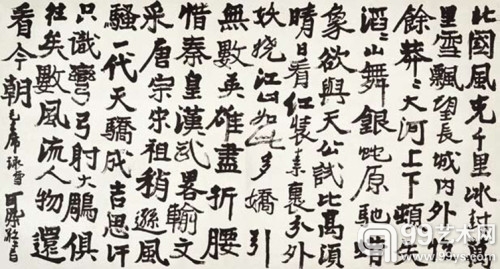 北國風光千里冰封萬
里雪飄望長城内外惟
餘莽々大河上下頓失
滔々山舞銀蛇原馳蜡
象欲與天公試比高須
晴日看紅裝素裹分外
妖嬈江山如此多嬌引
無數英雄盡折腰
惜秦皇漢武畧輸文
采唐宗宋祖稍遜風
騷一代天驕成吉思汗
只識彎弓射大鵰俱
往矣數風流人物還
看今朝
毛主席詠雪
99艺术网
www.99ys.com